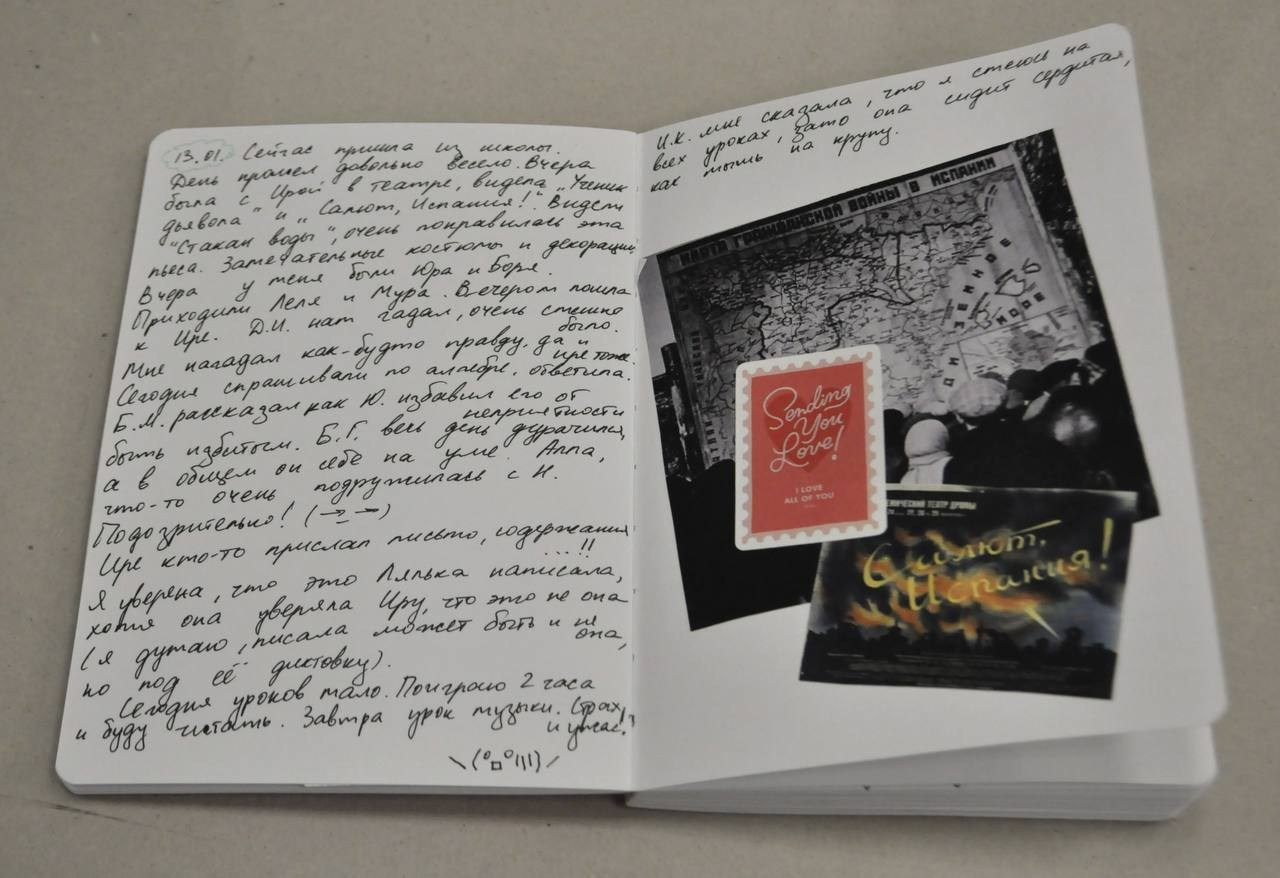 13.01. Сейчас пришла из школы.
День прошел довольно весело. Вчера
была с Ирой в театре, видела „Ученик
дьявола" и „Салют, Испания!". Видели
"Стакан воды", очень понравилась эта
пьеса. Замечательные костюмы и декорации
Вчера у меня были Юра и Боря.
Приходили Леля и Мура. Вечером пошла
к Ире. Д.И. нам гадал, очень смешно
было.
Мне нагадал как-будто правду, да и
Ире тоже.
Сегодня спрашивали по алгебре, ответила.
Б.М. рассказал как Ю. избавил его от
неприятности
быть избитым. Б.Г. весь день дурачился,
а в общем он себе на уме. Алла,
что-то очень подружилась с Н.
Подозрительно! (→_→)
Ире кто-то прислал письмо, содержания
...!!
Я уверена, что это Лялька написала,
хотя она уверяла Иру, что это не она
(я думаю, писала может быть и не
она,
но под её диктовку).
Сегодня уроков мало. Поиграю 2 часа
и буду читать. Завтра урок музыки. Страх
и ужас!
\(°□°|||)/
И.К. мне сказала, что я смеюсь на
всех уроках, зато она сидит сердитая,
как мышь на крупу.
КАРТА ГРАЖДАНСКОЙ ВОЙНЫ В ИСПАНИИ
Sending
You
Love!
I LOVE
ALL OF YOU
Салют,
Испания!